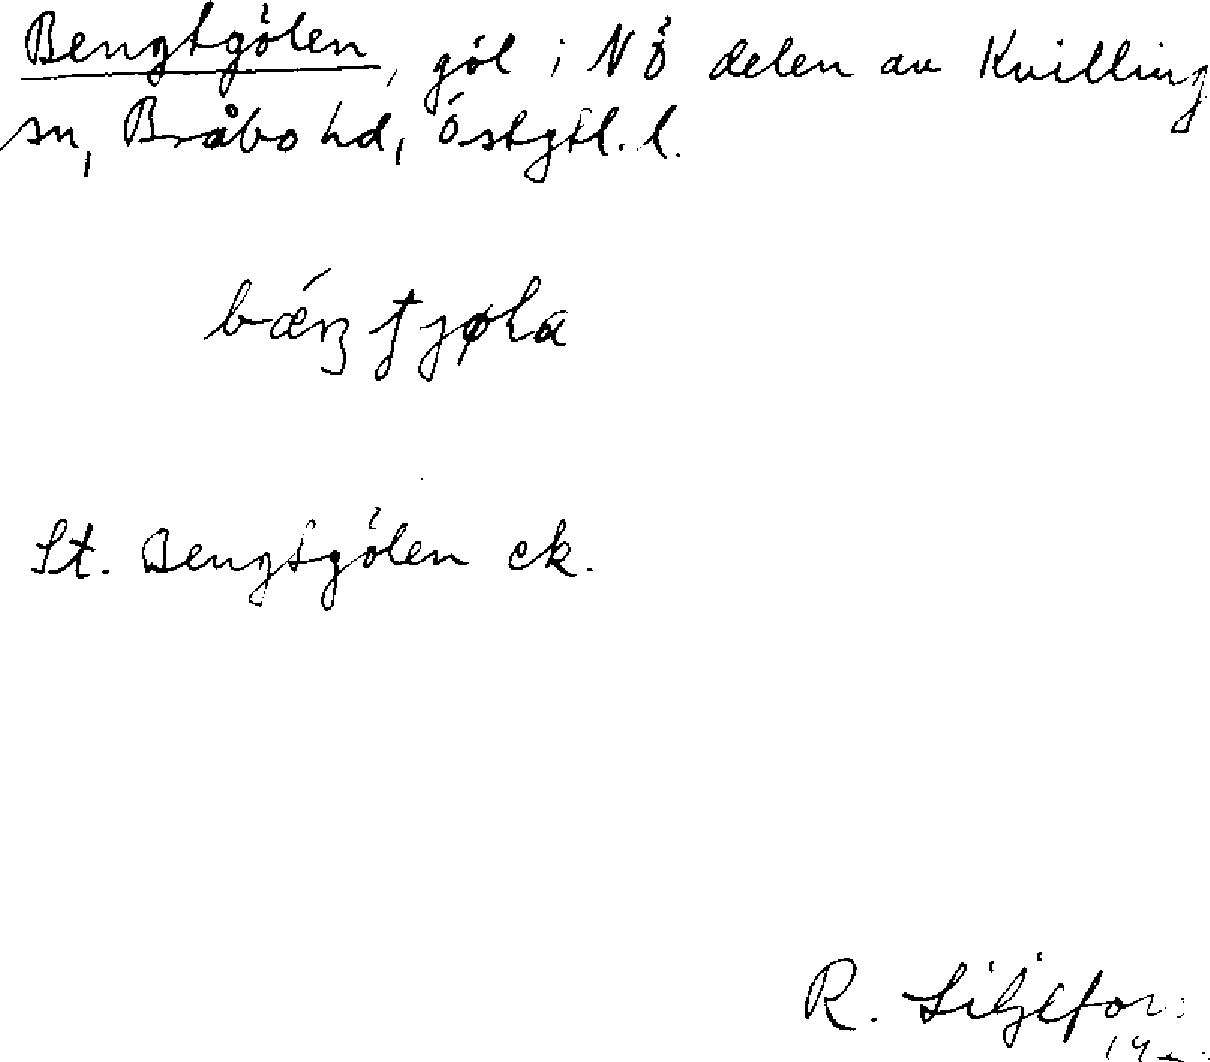 Bengtgölen, göl i NÖ delen av Kvilling
sn, Bråbo hd, Östgtl. l.
St. Bengtgölen ek.
R. Liljefor